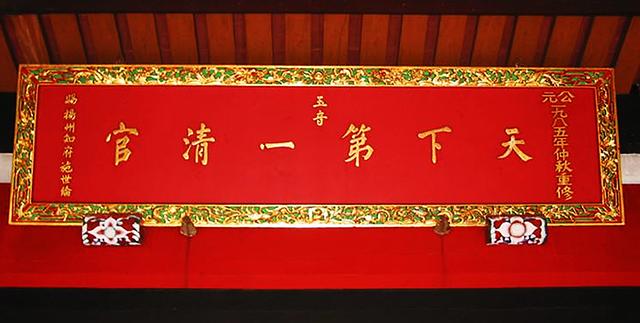 公元一九八五年仲秋重修
玉音
天下第一清官
賜揚州知府施世綸